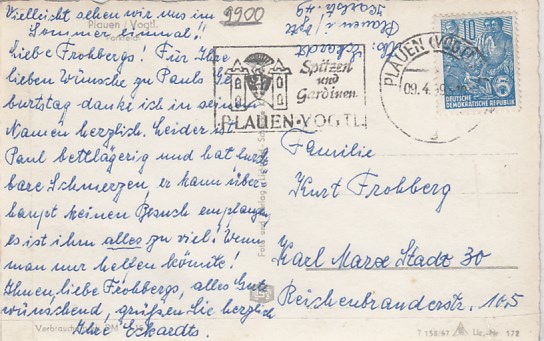 Vielleicht sehen wir uns im
Sommer einmal!!
Plauen / Vogtl.
Liebe Frohbergs! Für Ihre
lieben Wünsche zu Pauls Ge-
burtstag danke ich in seinem
Namen herzlich. Leider ist
Paul bettlägerig und hat furcht-
bare Schmerzen, er kann über-
haupt keinen Besuch empfangen
es ist ihm alles zu viel! Wenn
man nur helfen könnte!
Ihnen, liebe Frohbergs, alles Gute
wünschend, grüßen Sie herzlich
Ihre Eckardts.
9900
Abs: Eckardts
Plauen i/Vgtl
Spitzen
und
Gardinen
PLAUEN · VOGTL
PLAUEN (VOGTL)
09.4.59
10
DEUTSCHE
DEMOKRATISCHE REPUBLIK
Familie
Kurt Frohberg
Karl Marx Stadt 30
Reichenbranderstr. 165
Foto und Verlag